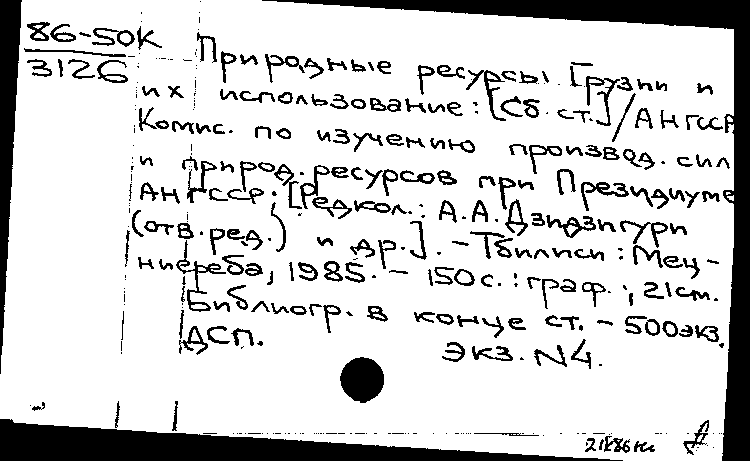 86-50К
3126
Природные ресурсы Грузии и
их использование: [Сб. ст.] / АН ГССР
Комис. по изучению производ. сил
и природ. ресурсов при Президиуме
АН ГССР; [Редкол.: А.А. Дзидзигури
(отв. ред.) и др.]. - Тбилиси: Мец-
ниереба, 1985. - 150 с.: граф.; 21 см.
Библиогр. в конце ст. - 500 экз.
ДСП. Экз. N4.